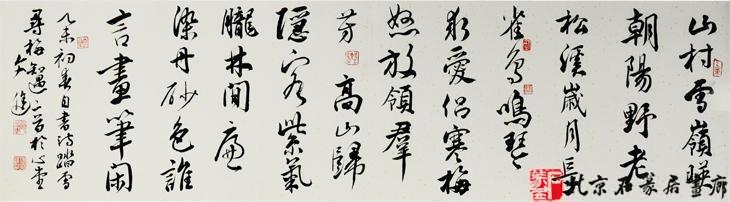 山村雪嶺暎
朝陽野老
松溪歲月
雀鳥鳴琴
愛侶寒梅
怒放領群
芳 高山歸
隱客紫氣
朧林間
染丹砂色誰
言畫筆閑
乙未初春自書詩踏雪
尋梅知遇二首於心堂
北京石篆居畫廊